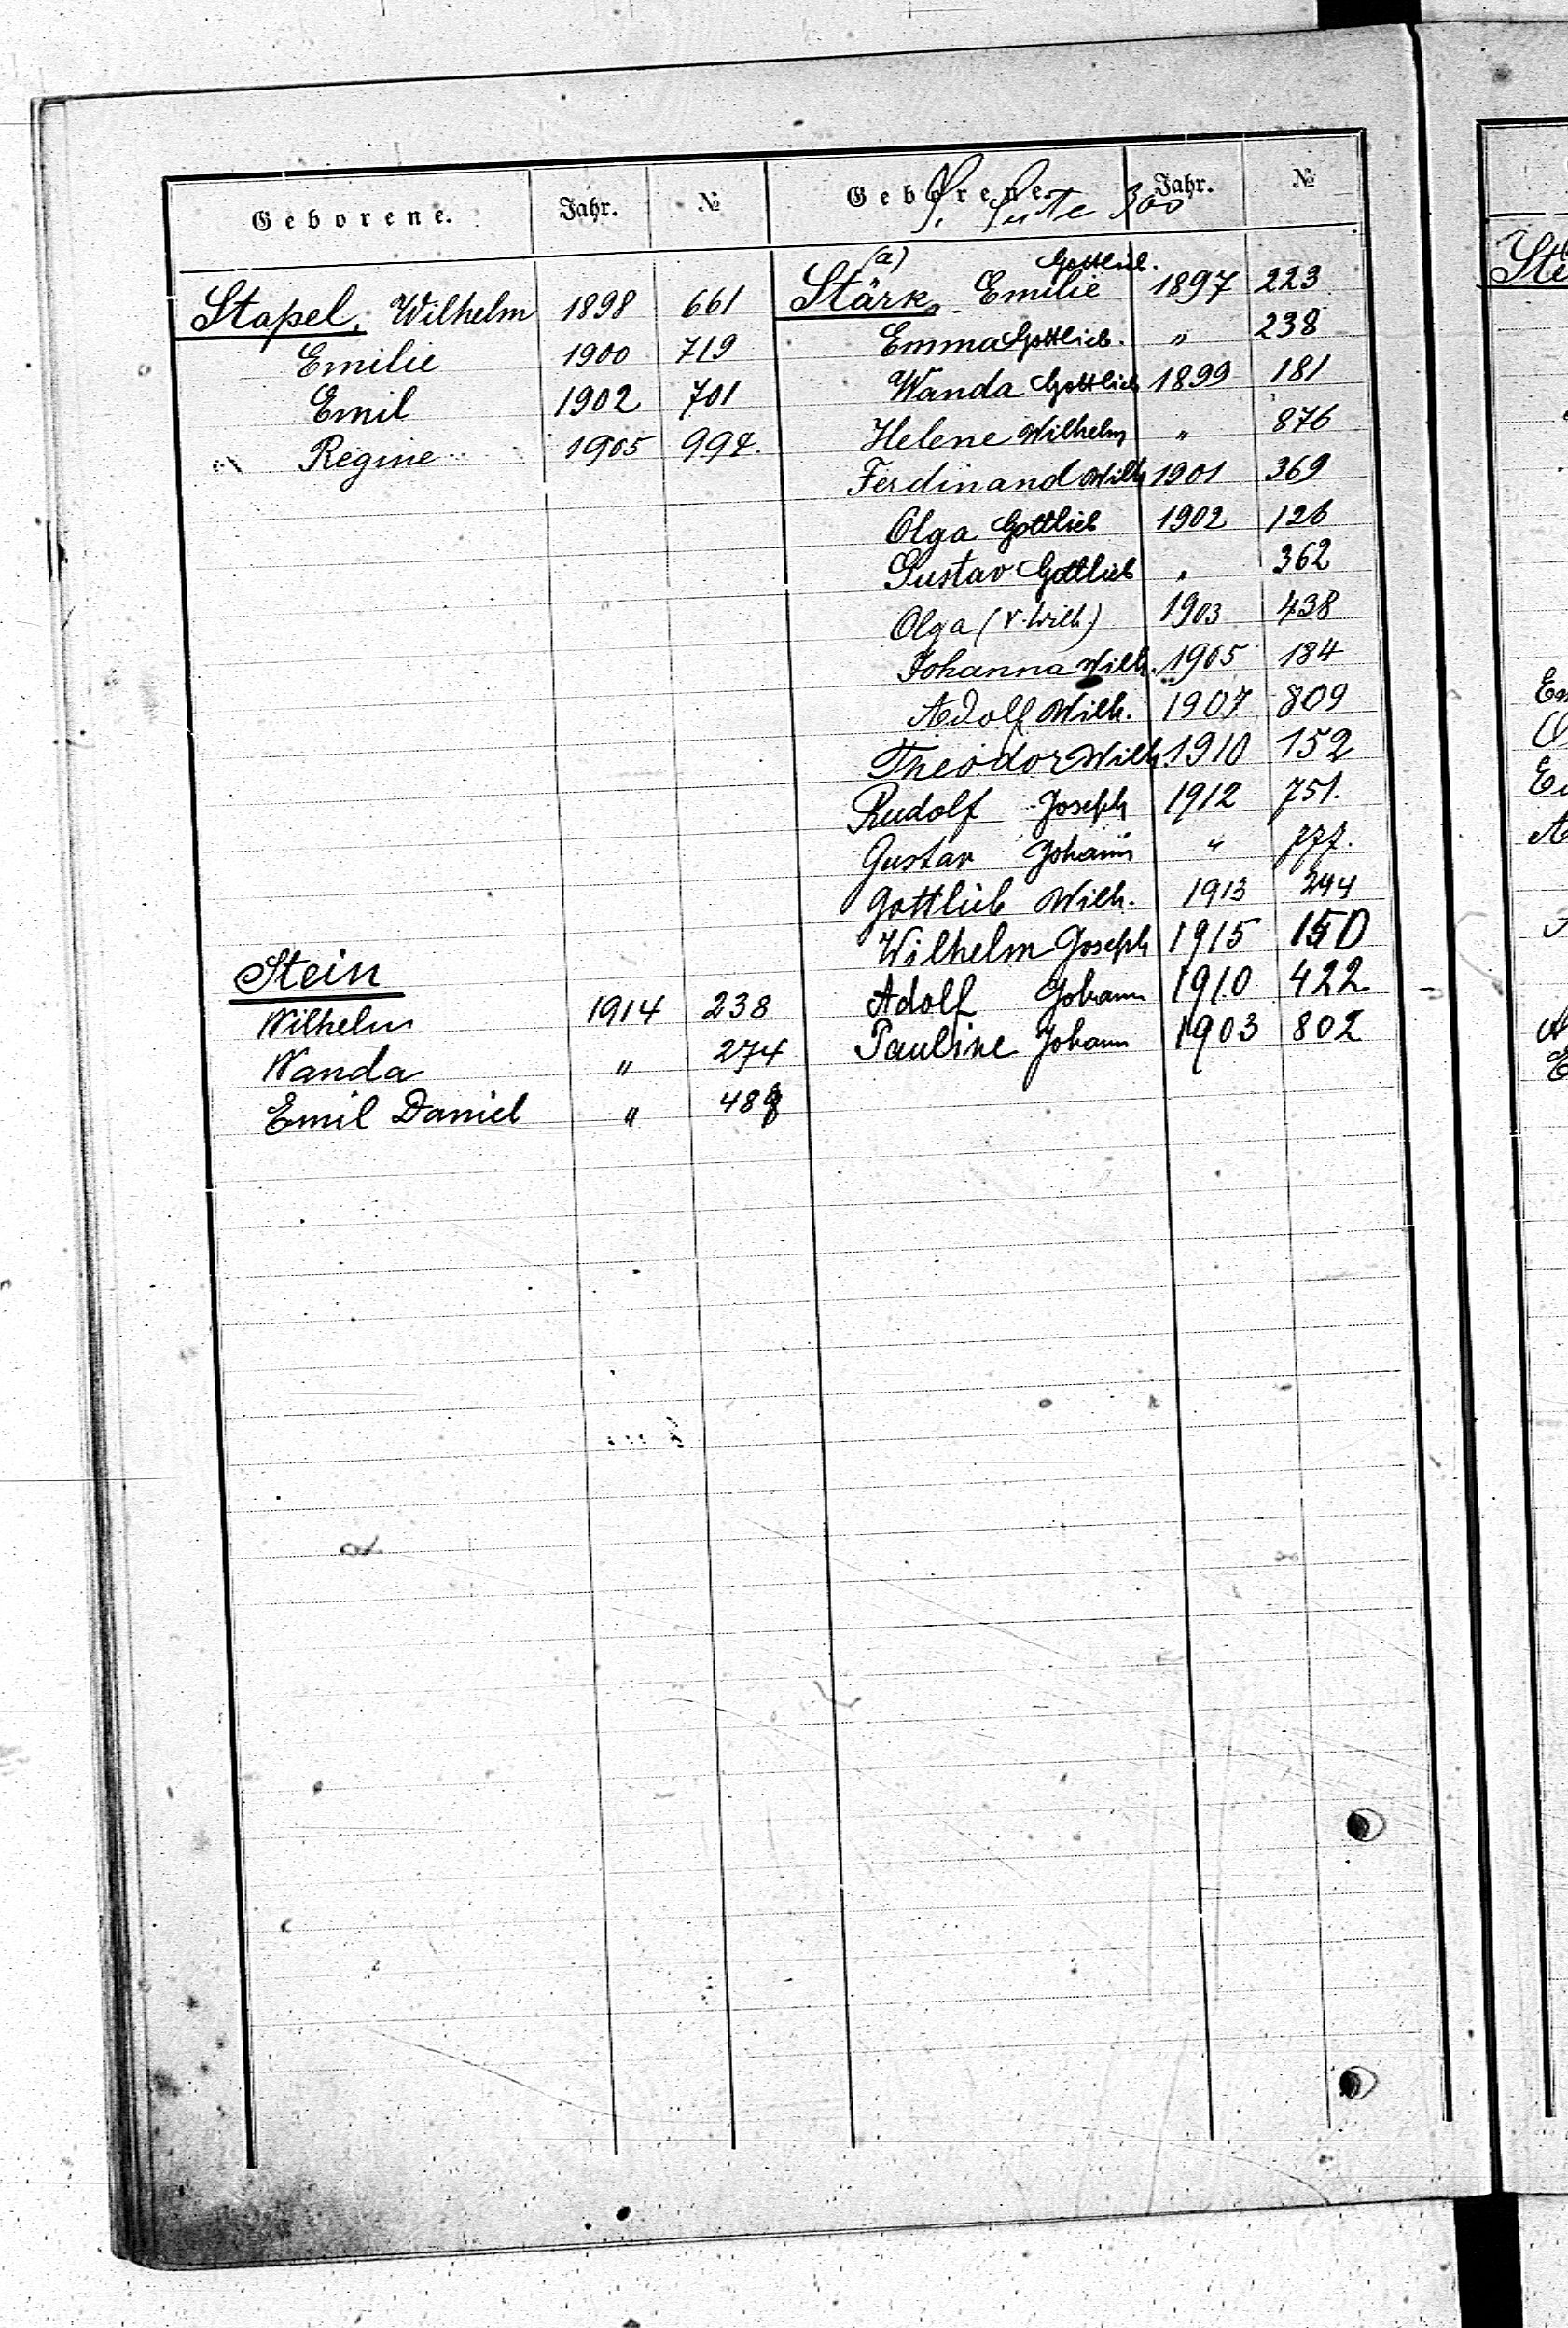 Geborene. Jahr. №
Stapel, Wilhelm 1898 661
Emilie 1900 719
Emil 1902 701
Regine 1905 994.
Stein
Wilhelm 1914 238
Wanda " 274
Emil Daniel " 488
Geborene. Jahr. №
S. Seite 300
(a) Gottlieb.
Stärk, Emilie 1897 223
Emma Gottlieb. " 238
Wanda Gottlieb 1899 181
Helene Wilhelm " 876
Ferdinand Wilh 1901 369
Olga Gottlieb 1902 126
Gustav Gottlieb " 362
Olga (v. Wilh.) 1903 438
Johanna Wilh. 1905 184
Adolf Wilh. 1907 809
Theodor Wilh. 1910 152
Rudolf Joseph 1912 751.
Gustav Johann " 777.
Gottlieb Wilh. 1913 244
Wilhelm Joseph 1915 150
Adolf Johann 1910 422
Pauline Johann 1903 802
№
Ste